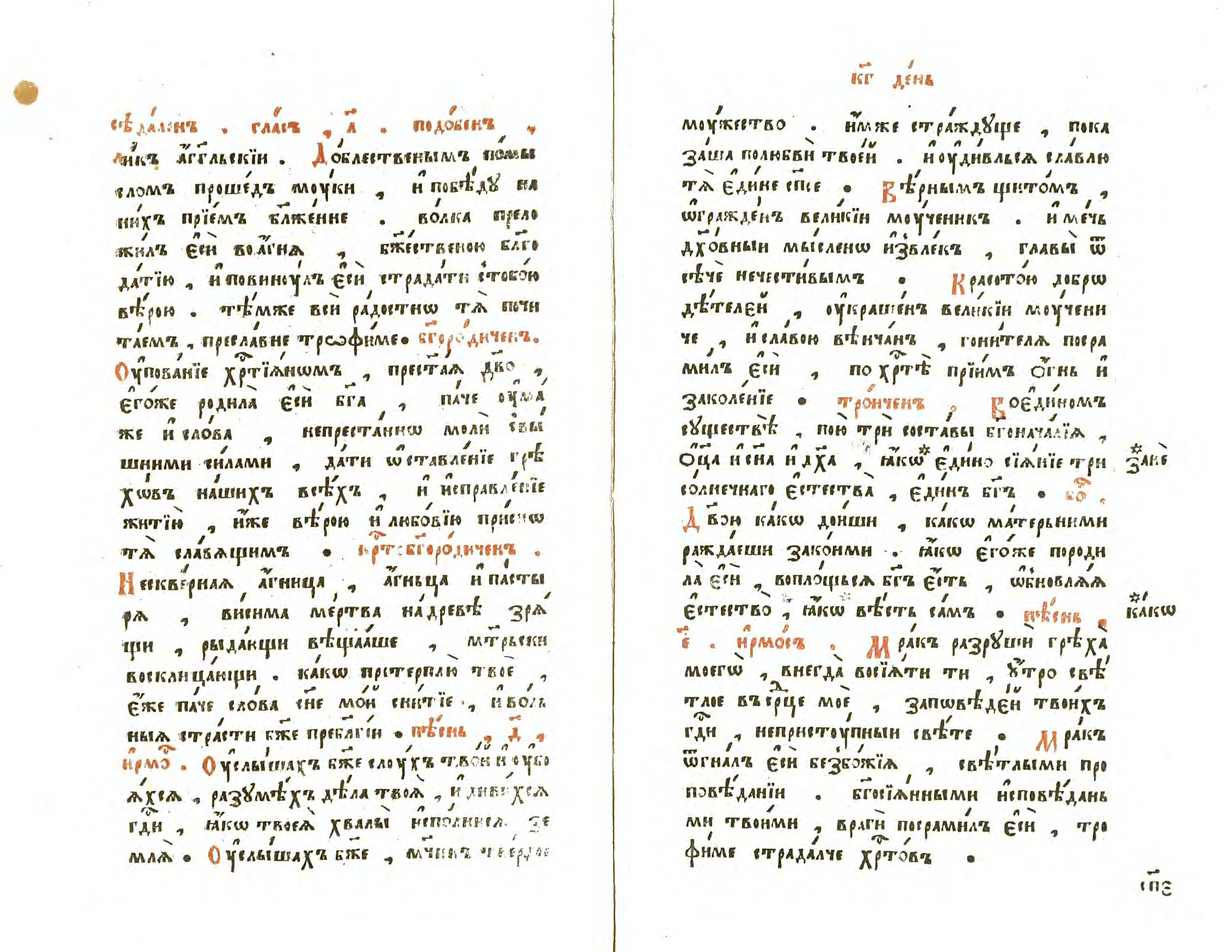 сѣда́ленъ . гла́съ , а҃ . подо́бенъ ,
ли́къ а҆́гг҃льскїи . До́блественымъ помы
сломъ проше́дъ мꙋ́ки , и҆ побѣ́дꙋ на
ни́хъ прїе́мъ бл҃же́нне . во́лка прело
жи́лъ є҆сѝ во а҆́гня , бж҃е́ственою бл҃го
да́тїю , и҆ повинꙋ́лъ є҆сѝ страда́ти с̾ тобо́ю
вѣ́рою . тѣ́мже всѝ ра́достнѡ тѧ̀ почи
та́емъ , пресла́вне трофи́ме . бг҃оро́диченъ .
Оу҆пова́нїе хрⷭ҇тїѧ́нѡмъ , прест҃а́ѧ дв҃о ,
є҆го́же роди́ла є҆сѝ бг҃а , па́че оу҆ма̀
же и҆ сло́ва , непреста́ннѡ молѝ свы́
шними си́лами , да́ти ѡ҆ставле́нїе грѣ
хѡ́въ на́шихъ всѣ́хъ , и҆ и҆справле́нїе
житїю̀ , и҆́же вѣ́рою и҆ любо́вїю при́снѡ
тѧ̀ сла́вѧщимъ . крⷭ҇тобг҃оро́диченъ .
Нескве́рнаѧ а҆́гница , а҆́гньца и҆ па́сты
рѧ , ви́сима ме́ртва на дре́вѣ зрѧ́
щи , рыда́ющи вѣща́аше , мт҃рьски
восклица́ющи . ка́кѡ претерплю̀ твоѐ ,
є҆́же па́че сло́ва сн҃е мо́й сни́тїе , и҆ во́ль
ныѧ стра́сти бж҃е пребл҃гі́и . пѣ́снь , д҃ ,
і҆рмо́с . Оу҆слы́шахъ бж҃е слꙋ́хъ тво́й и҆ оу҆бо
ѧ́хсѧ , разꙋмѣ́хъ дѣла̀ твоѧ̀ , и҆ диви́хсѧ
гдⷭ҇и , ꙗ҆́кѡ твоеѧ̀ хвалы̀ и҆спо́лнисѧ зе
млѧ̀ . Оу҆слы́шахъ бж҃е , мч҃нкъ твердое
кг҃ де́нь
мꙋ́жество . и҆́мже стра́ждꙋще , пока
за́ша полюбвѝ твое́й . и҆ оу҆диви́льсѧ сла́влю
тѧ̀ є҆ди́не сп҃се . Вѣ́рнымъ щито́мъ ,
ѡ҆гражде́нъ вели́кїи мꙋ́ченикъ . и҆ ме́чь
дх҃о́вныи мы́сленѡ и҆звле́къ , главы̀ ѿ
сѣ́че нечести́вымъ . Красото́ю добрѡ
дѣ́телей , оу҆краше́нъ вели́кїи мꙋ́чени
че , и҆ сла́вою вѣнча́нъ , гони́телѧ посра
ми́лъ є҆сѝ , по хрⷭ҇тѣ̀ прїи́мъ о҆́гнь и҆
заколе́нїе . тро́иченъ . Воеди́номъ
сꙋществѣ̀ , пою̀ трѝ соста́вы бг҃онача́лїѧ ,
Ѻ҆ц҃а̀ и҆ сн҃а и҆ дх҃а , * ꙗ҆́кѡ * є҆ди́но сїѧ́нїе три * занѐ
со́лнечнаго є҆стества̀ , є҆ди́нъ бг҃ъ . бо҃ .
Дв҃ою ка́кѡ дои́ши , ка́кѡ ма́терьними
ражда́еши зако́нми . ꙗ҆́кѡ є҆го́же породи
ла̀ є҆сѝ , вопло́щьсѧ бг҃ъ є҆́сть , ѡ҆бновлѧ́ѧ
є҆стество̀ , * ꙗ҆́кѡ * вѣ́сть са́мъ . пѣ́снь , * ка́кѡ
є҃ . і҆рмо́съ . Мра́къ разрꙋшѝ грѣха̀
моегѡ̀ , внегда̀ возсїѧ́ти ти , оу҆́тро свѣ́
тлое в̾ се́рⷣце моѐ , за́пѡвѣдей твои́хъ
гдⷭ҇и , непристꙋ́пныи свѣ́те . Мра́къ
ѿгна́лъ є҆сѝ безбо́жїѧ , свѣ́тлыми про
повѣ́дании . бг҃осїѧ́нными и҆сповѣ́дань
ми твои́ми , врагѝ посрами́лъ є҆сѝ , тро
фи́ме страда́лче хрⷭ҇то́въ .
сп҃з